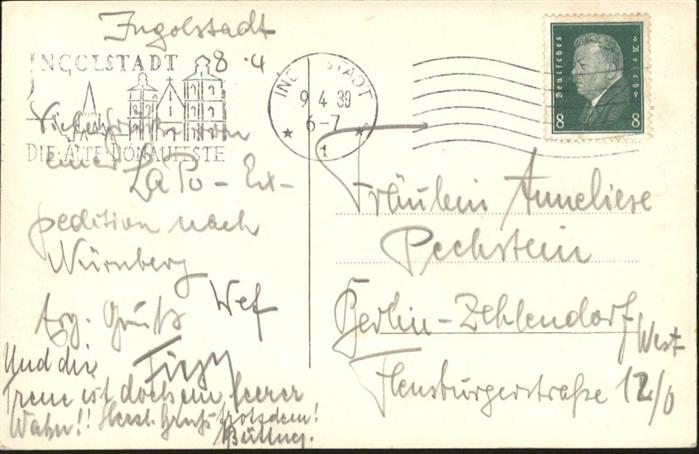 Ingolstadt
8.4
INGOLSTADT
DIE ALTE DONAUFESTE
INGOLSTADT
9.4.30
6-7
1
Deutsches Reich
8 8
Viele Grüße von
einer LaPo-Ex-
pedition nach
Nürnberg
Gruß Wef
Und die
Treue ist doch ein leerer
Wahn!! Herzl. Gruß trotzdem!
Fräulein Anneliese
Pechstein
Berlin-Zehlendorf
West
Flensburgerstraße 12/0